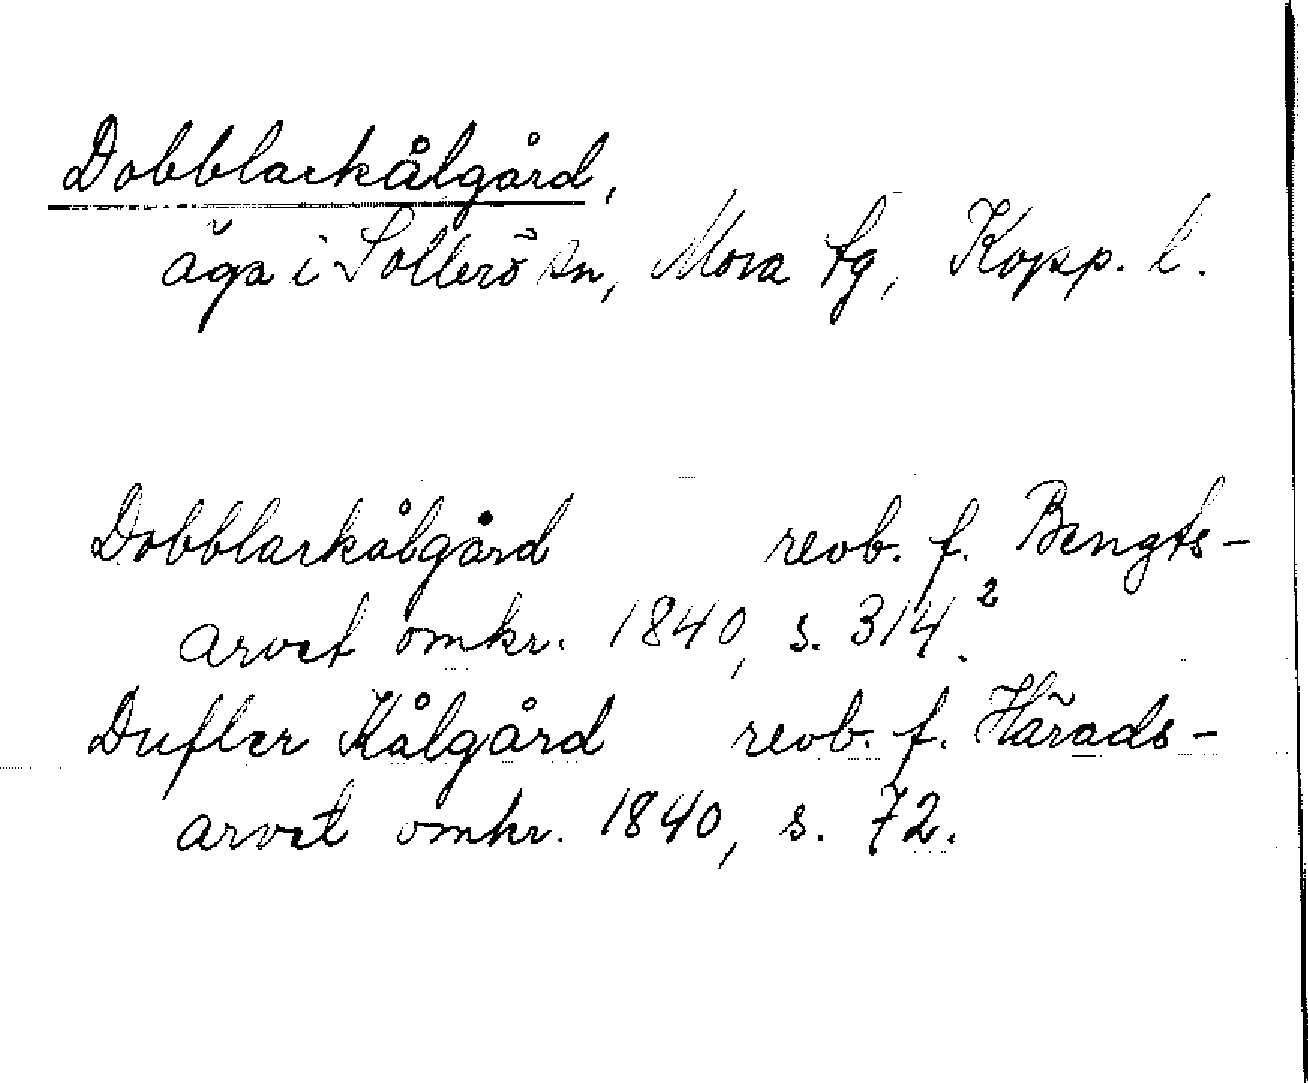 Dobblarkålgård,
äga i Sollerö sn, Mora tg, Kopp. l.
Dobblarkålgård revb. f. Bengts-
arvet omkr. 1840, s. 314.²
Dufler Kålgård revb. f. Härads-
arvet omkr. 1840, s. 72.